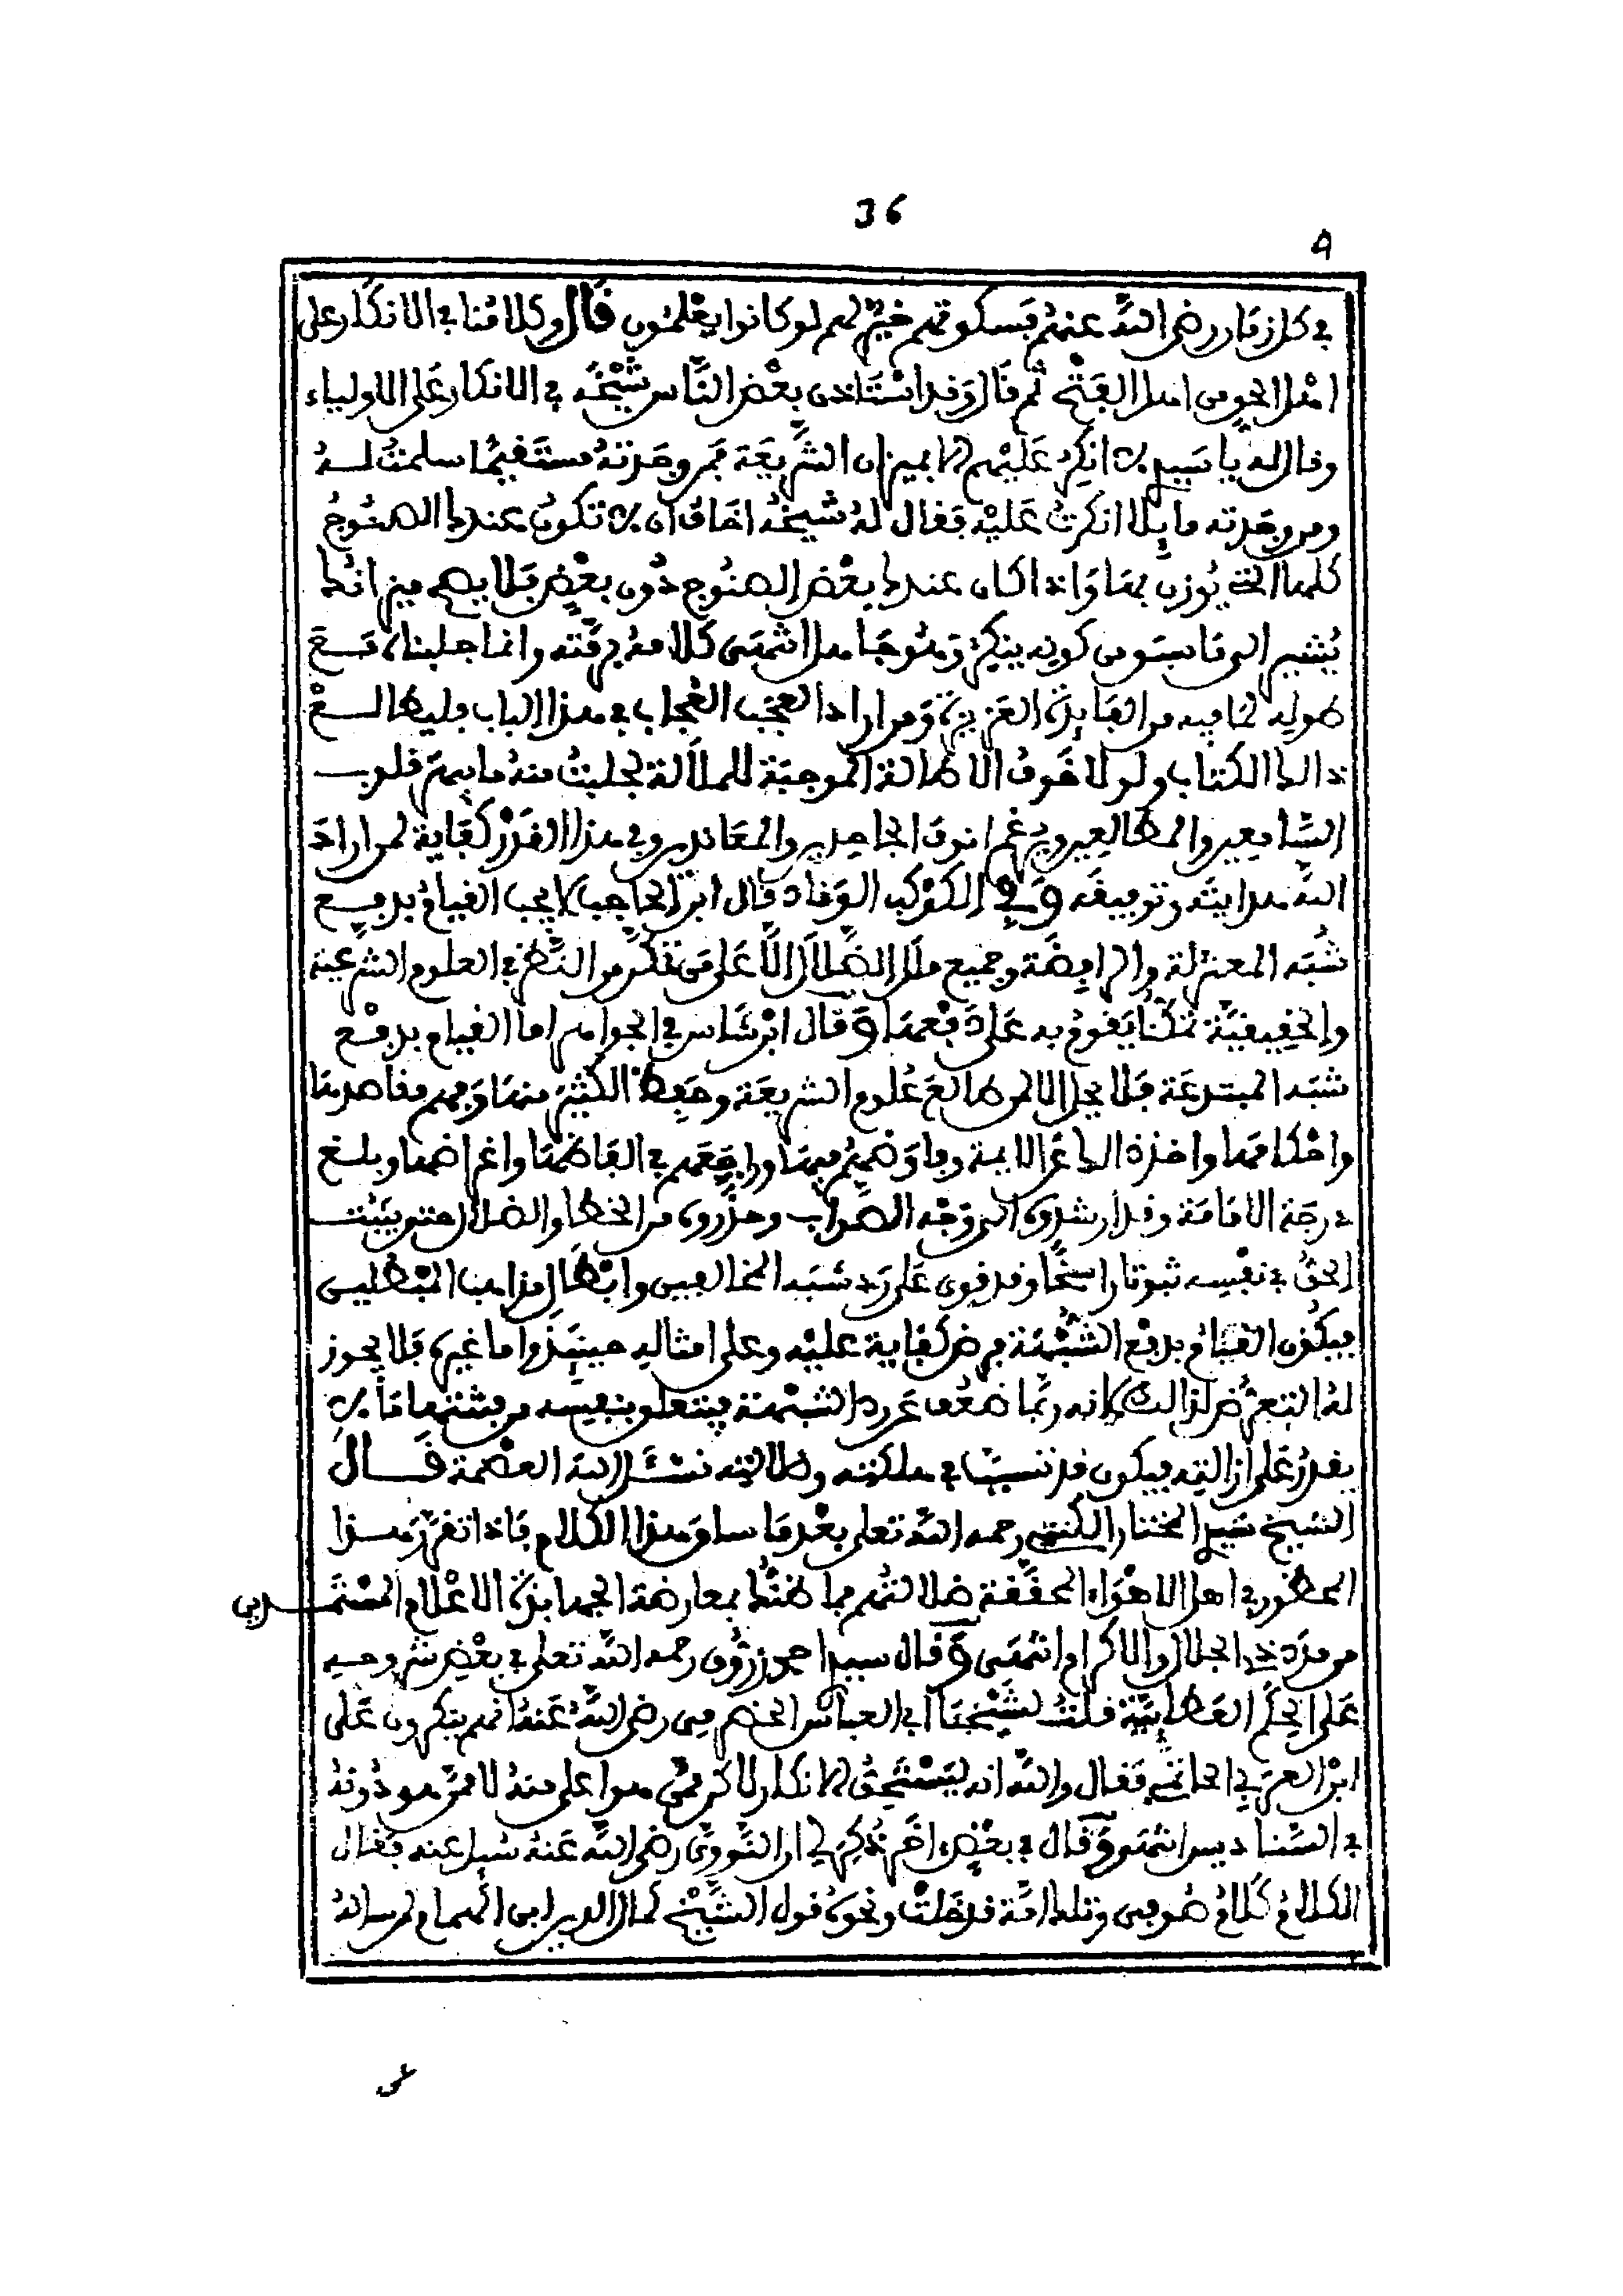 36
9
في كل زمان رضي الله عنهم فسكوتهم خير لهم لو كانوا يعلمون قال وكلامنا في الانكار على
اهل الحق من اهل الفتح ثم قال وقد استاذن بعض الناس شيخه في الانكار على الاولياء
وقال له يا سيدي لا انكر عليهم الا بميزان الشريعة فمن وجدته مستقيما سلمت له
ومن وجدته مايلا انكرت عليه فقال له شيخه اخاف ان لا تكون عندك الصنوج
كلها التي يوزن بها واذا كان عندك بعض الصنوج دون بعض فلا يصح ميزانك
يشير الى ما سبق من كونه ينكر وهو جاهل انتهى كلامه برمته وانما جلبناه مع
طوله لما فيه من الفايدة العزيزة ومن اراد العجب العجاب في هذا الباب فليطالع
ذالك الكتاب ولولا خوف الاطالة الموجبة للملالة لجلبت منه ما يبهر قلوب
السامعين والمطالعين ويرغم انوف الجاحدين والمعاندين وفي هذا القدر كفاية لمن اراد
الله هدايته وتوفيقه وفي الكوكب الوقاد قال ابن الحاجب لا يجب القيام بدفع
شبه المعتزلة والرافضة وجميع ملل الضلال الا على من تمكن من النظر في العلوم الشرعية
والحقيقية تمكنا يقوى به على دفعها وقال ابن شاس في الجواهر اما القيام بدفع
شبه المبتدعة فلا يحل الا لمن طالع علوم الشريعة وحفظ الكثير منها وفهم مقاصدها
واحكامها واخذ ذالك عن الايمة وفاوضهم فيها وراجعهم في الفاظها واغراضها وبلغ
درجة الامامة وقد ارشدوه الى وجه الصواب وحذروه من الخطا والضلال حتى يثبت
الحق في نفسه ثبوتا راسخا وقد قوي على رد شبه المخالفين وابطال مذاهب المبطلين
فيكون القيام بدفع الشبهة فرض كفاية عليه وعلى امثاله حينئذ واما غيره فلا يجوز
له التعرض لذالك لانه ربما ضعف عن رد الشبهة فيتعلق بنفسه من بشاعتها ما لا
يقدر على ازالته فيكون قد تسبب في هلكته وضلالته نسئل الله العصمة قال
الشيخ سيدي المختار الكنتي رحمه الله تعلى بعد ما ساق هذا الكلام فاذا تقرر هذا
المحظور في اهل الاهواء المحققة ضلالتهم فما ظنك بمعارضة الجهابذة الاعلام المستمدين
من مدد ذي الجلال والاكرام انتهى وقال سيدي احمد زروق رحمه الله تعلى في بعض شروحه
على الحكم العطائية قلت لشيخنا ابي العباس الحضرمي رضي الله عنه انهم ينكرون على
ابن العربي الحاتمي فقال والله انه ليستحق الانكار لاكن ممن هو اعلى منه لا ممن هو دونه
في السنا ديس انتهى وقال في بعض اخر ذكر لي ان النووي رضي الله عنه سيل عنه فقال
الكلام كلام صوفي وتلك امة قد خلت ونحوه قول الشيخ كمال الدين ابن الهمام لمن ساله